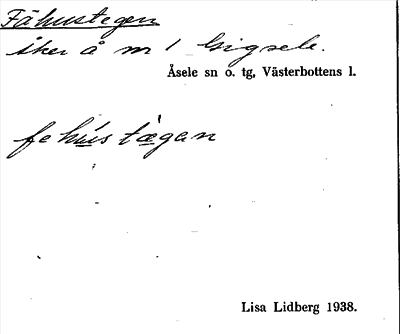 Fähustegen
åker å m 1 Gigsele.
Åsele sn o. tg, Västerbottens l.
fehústægan
Lisa Lidberg 1938.